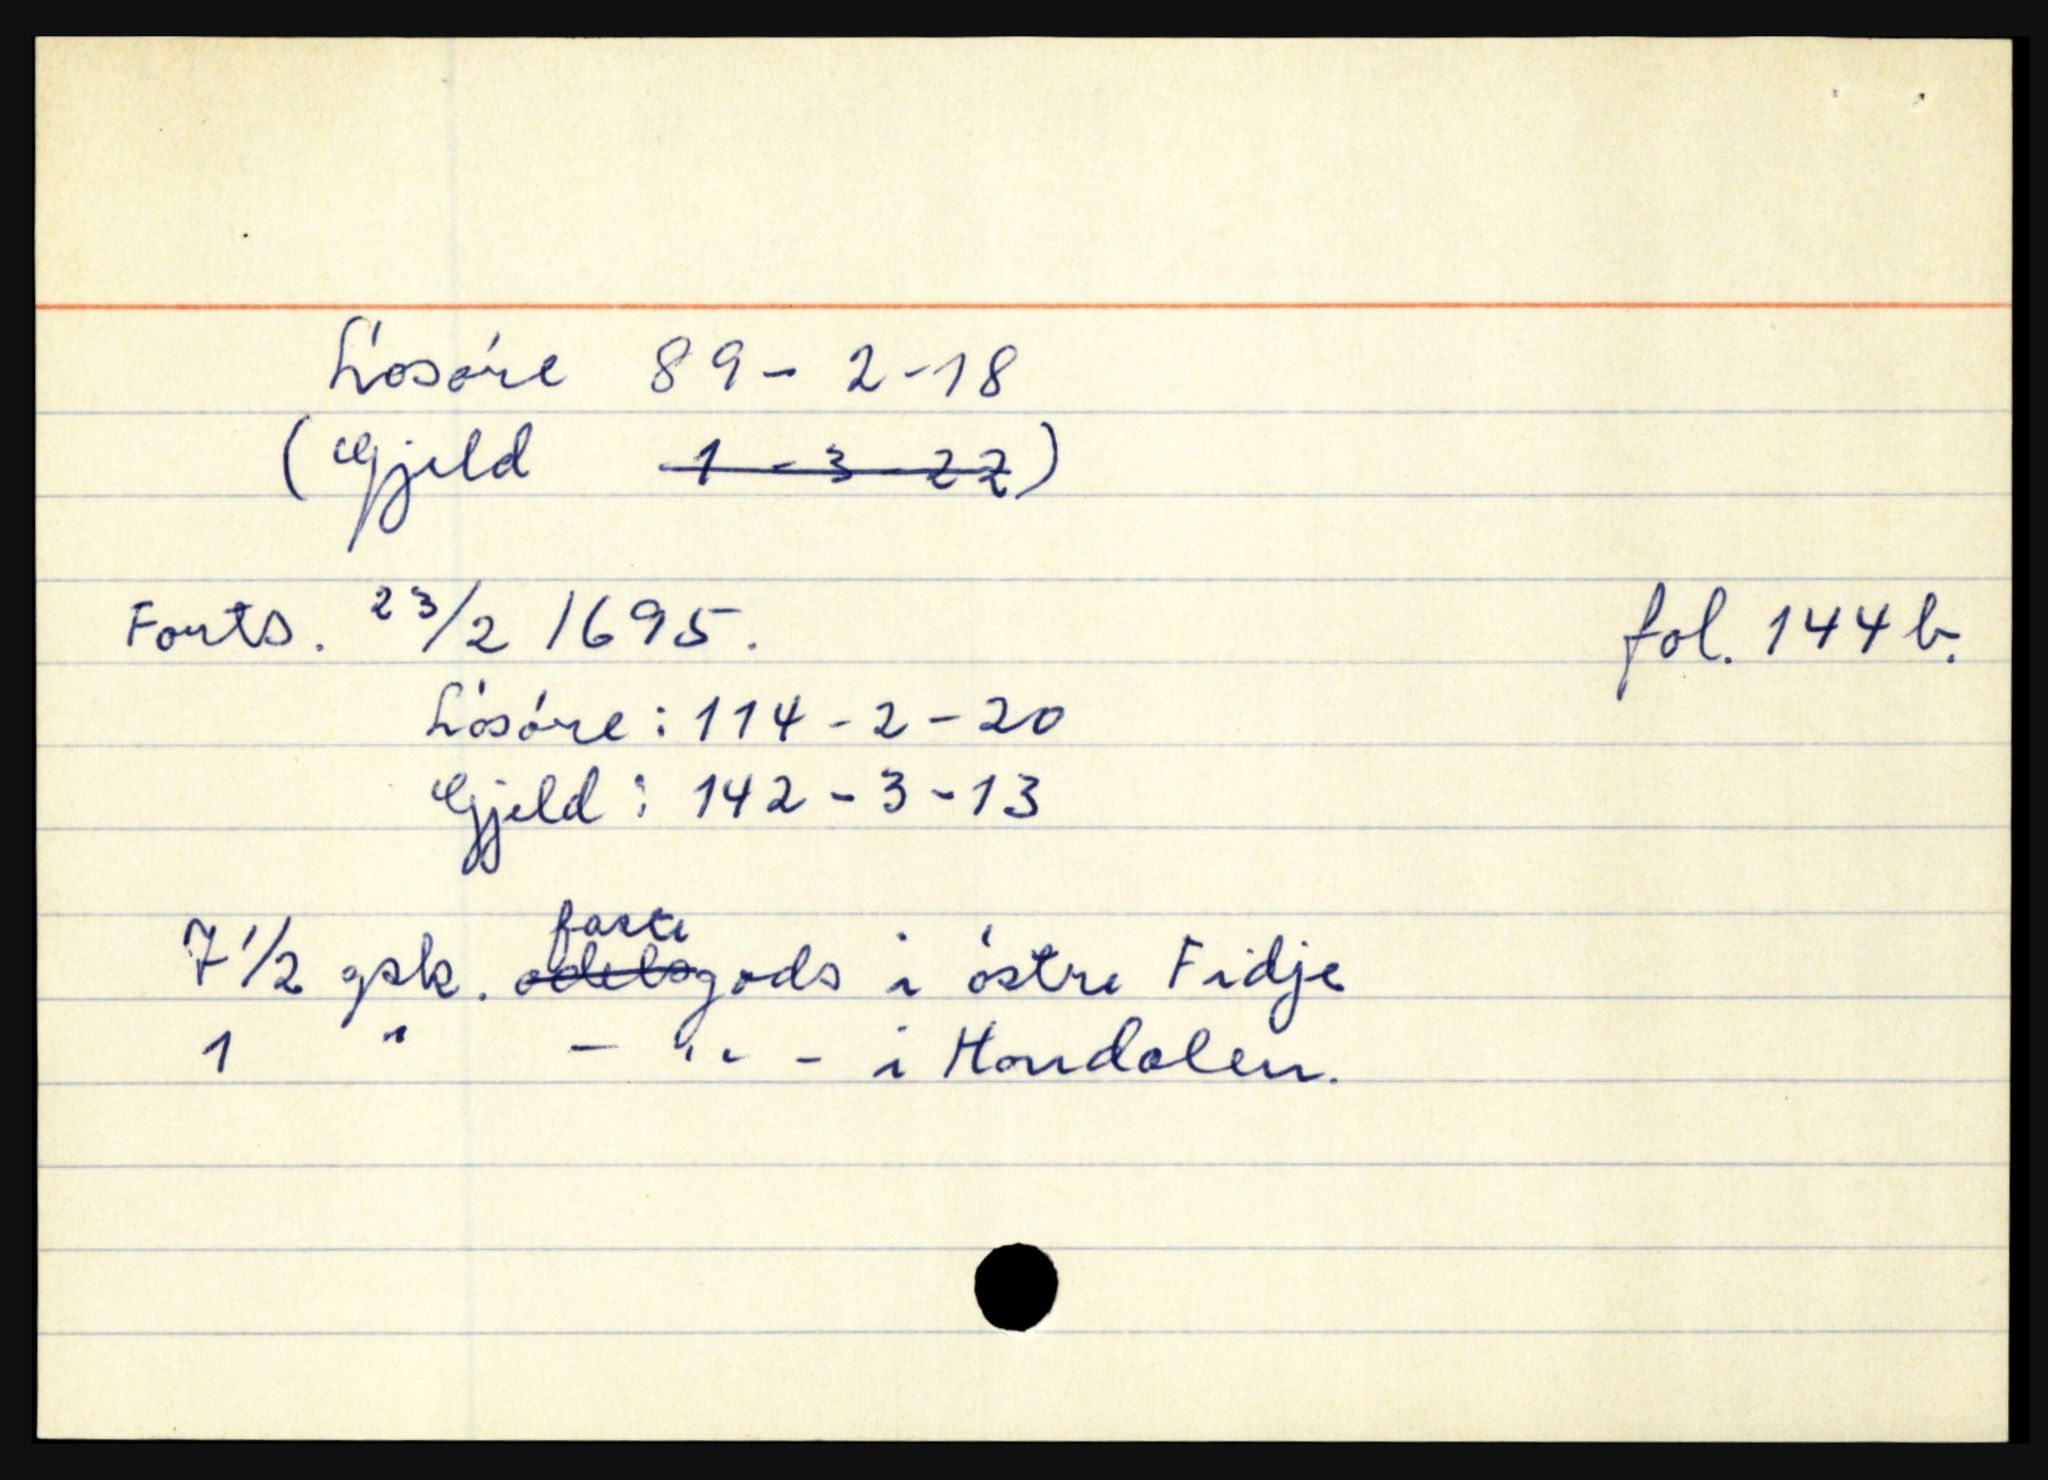 Lösöre 89 - 2 - 18
(Gjeld 1 - 3 - 22)
Forts. 23/2 1695. fol. 144 b.
Lösöre : 114 - 2 - 20
Gjeld : 142 - 3 - 13
faste
7 1/2 gsk. odelsgods i östre Fidje
1 " - " - i Hondalen.